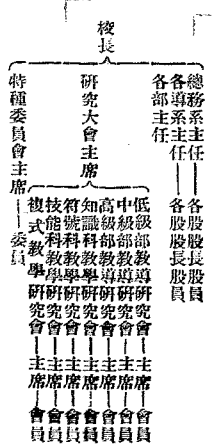 校長
總務系主任——各股股長股員
各導系主任——各股股長股員
各部主任
研究大會主席
低級部教導研究會—主席—會員
中級部教導研究會—主席—會員
高級部教導研究會—主席—會員
知識科教學研究會—主席—會員
符號科教學研究會—主席—會員
技能科教學研究會—主席—會員
複式教學研究會—主席—會員
特種委員會主席——委員